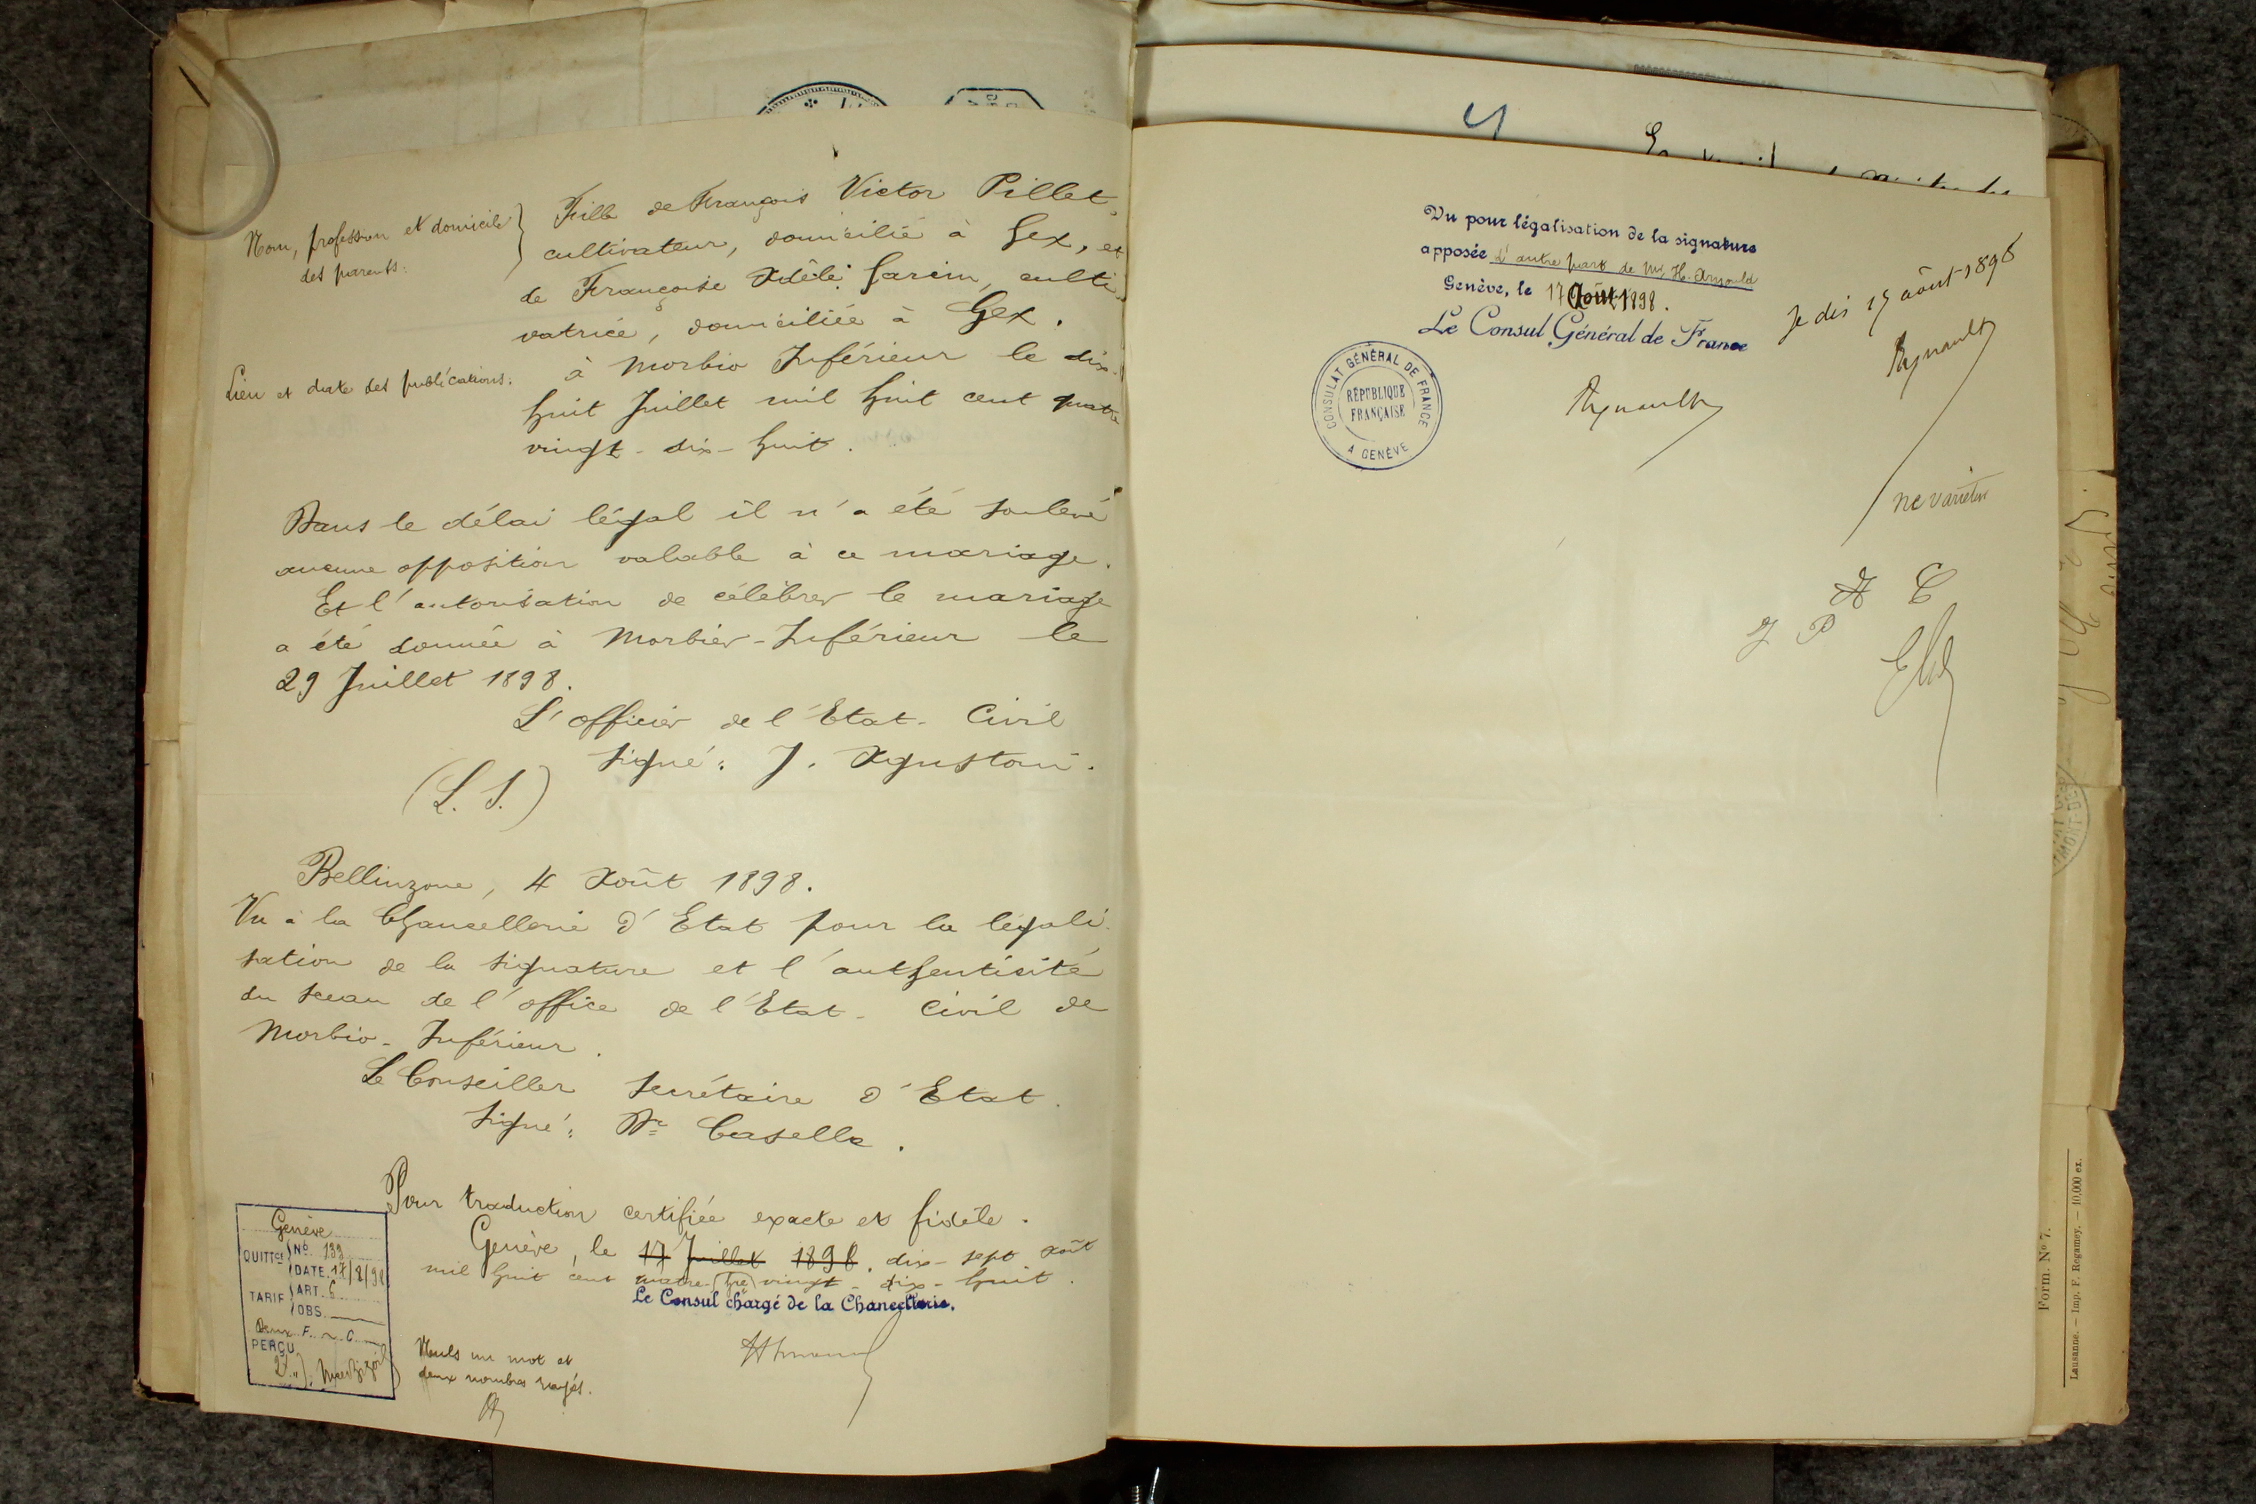 Nom, profession et domicile
des parents:
Fille de François Victor Pillet,
cultivateur, domicilié à Gex, et
de Françoise Adèle Garcin, culti-
vatrice, domiciliée à Gex.
Lieu et date des publications:
à Morbio Inférieur le dix-
huit Juillet mil huit cent quatre
vingt-dix-huit.
Dans le délai légal il n'a été soulevé
aucune opposition valable à ce mariage.
Et l'autorisation de célébrer le mariage
a été donnée à Morbier-Inférieur le
29 Juillet 1898.
L'officier de l'Etat-Civil
signé: J. Agustoni.
(L. S.)
Bellinzone, 4 Août 1898.
Vu à la Chancellerie d'Etat pour la légali-
sation de la signature et l'authenticité
du sceau de l'office de l'Etat-Civil de
Morbio-Inférieur.
Le Conseiller Secrétaire d'Etat.
signé: Dr Casella.
Pour traduction certifiée exacte et fidèle.
Genève, le 17 Juillet 1898. dix-sept Août
mil huit cent quatre vingt-dix-huit.
Le Consul chargé de la Chancellerie.
Genève
QUITTCE No. 139
DATE. 17/8/98
TARIF ART. 6
OBS.
Deux F. C.
PERÇU
Nuls un mot et
deux nombres rayés.
Vu pour légalisation de la signature
apposée d'autre part de Mr. H. Arnould
Genève, le 17 Août 1898.
Le Consul Général de France
CONSULAT GÉNÉRAL DE FRANCE
RÉPUBLIQUE
FRANÇAISE
A GENÈVE
Regnault
Je dis 17 août 1898
Regnault
ne varietur
A C
J P
Form. No 7.
Lausanne. — Imp. F. Regamey. — 10,000 ex.